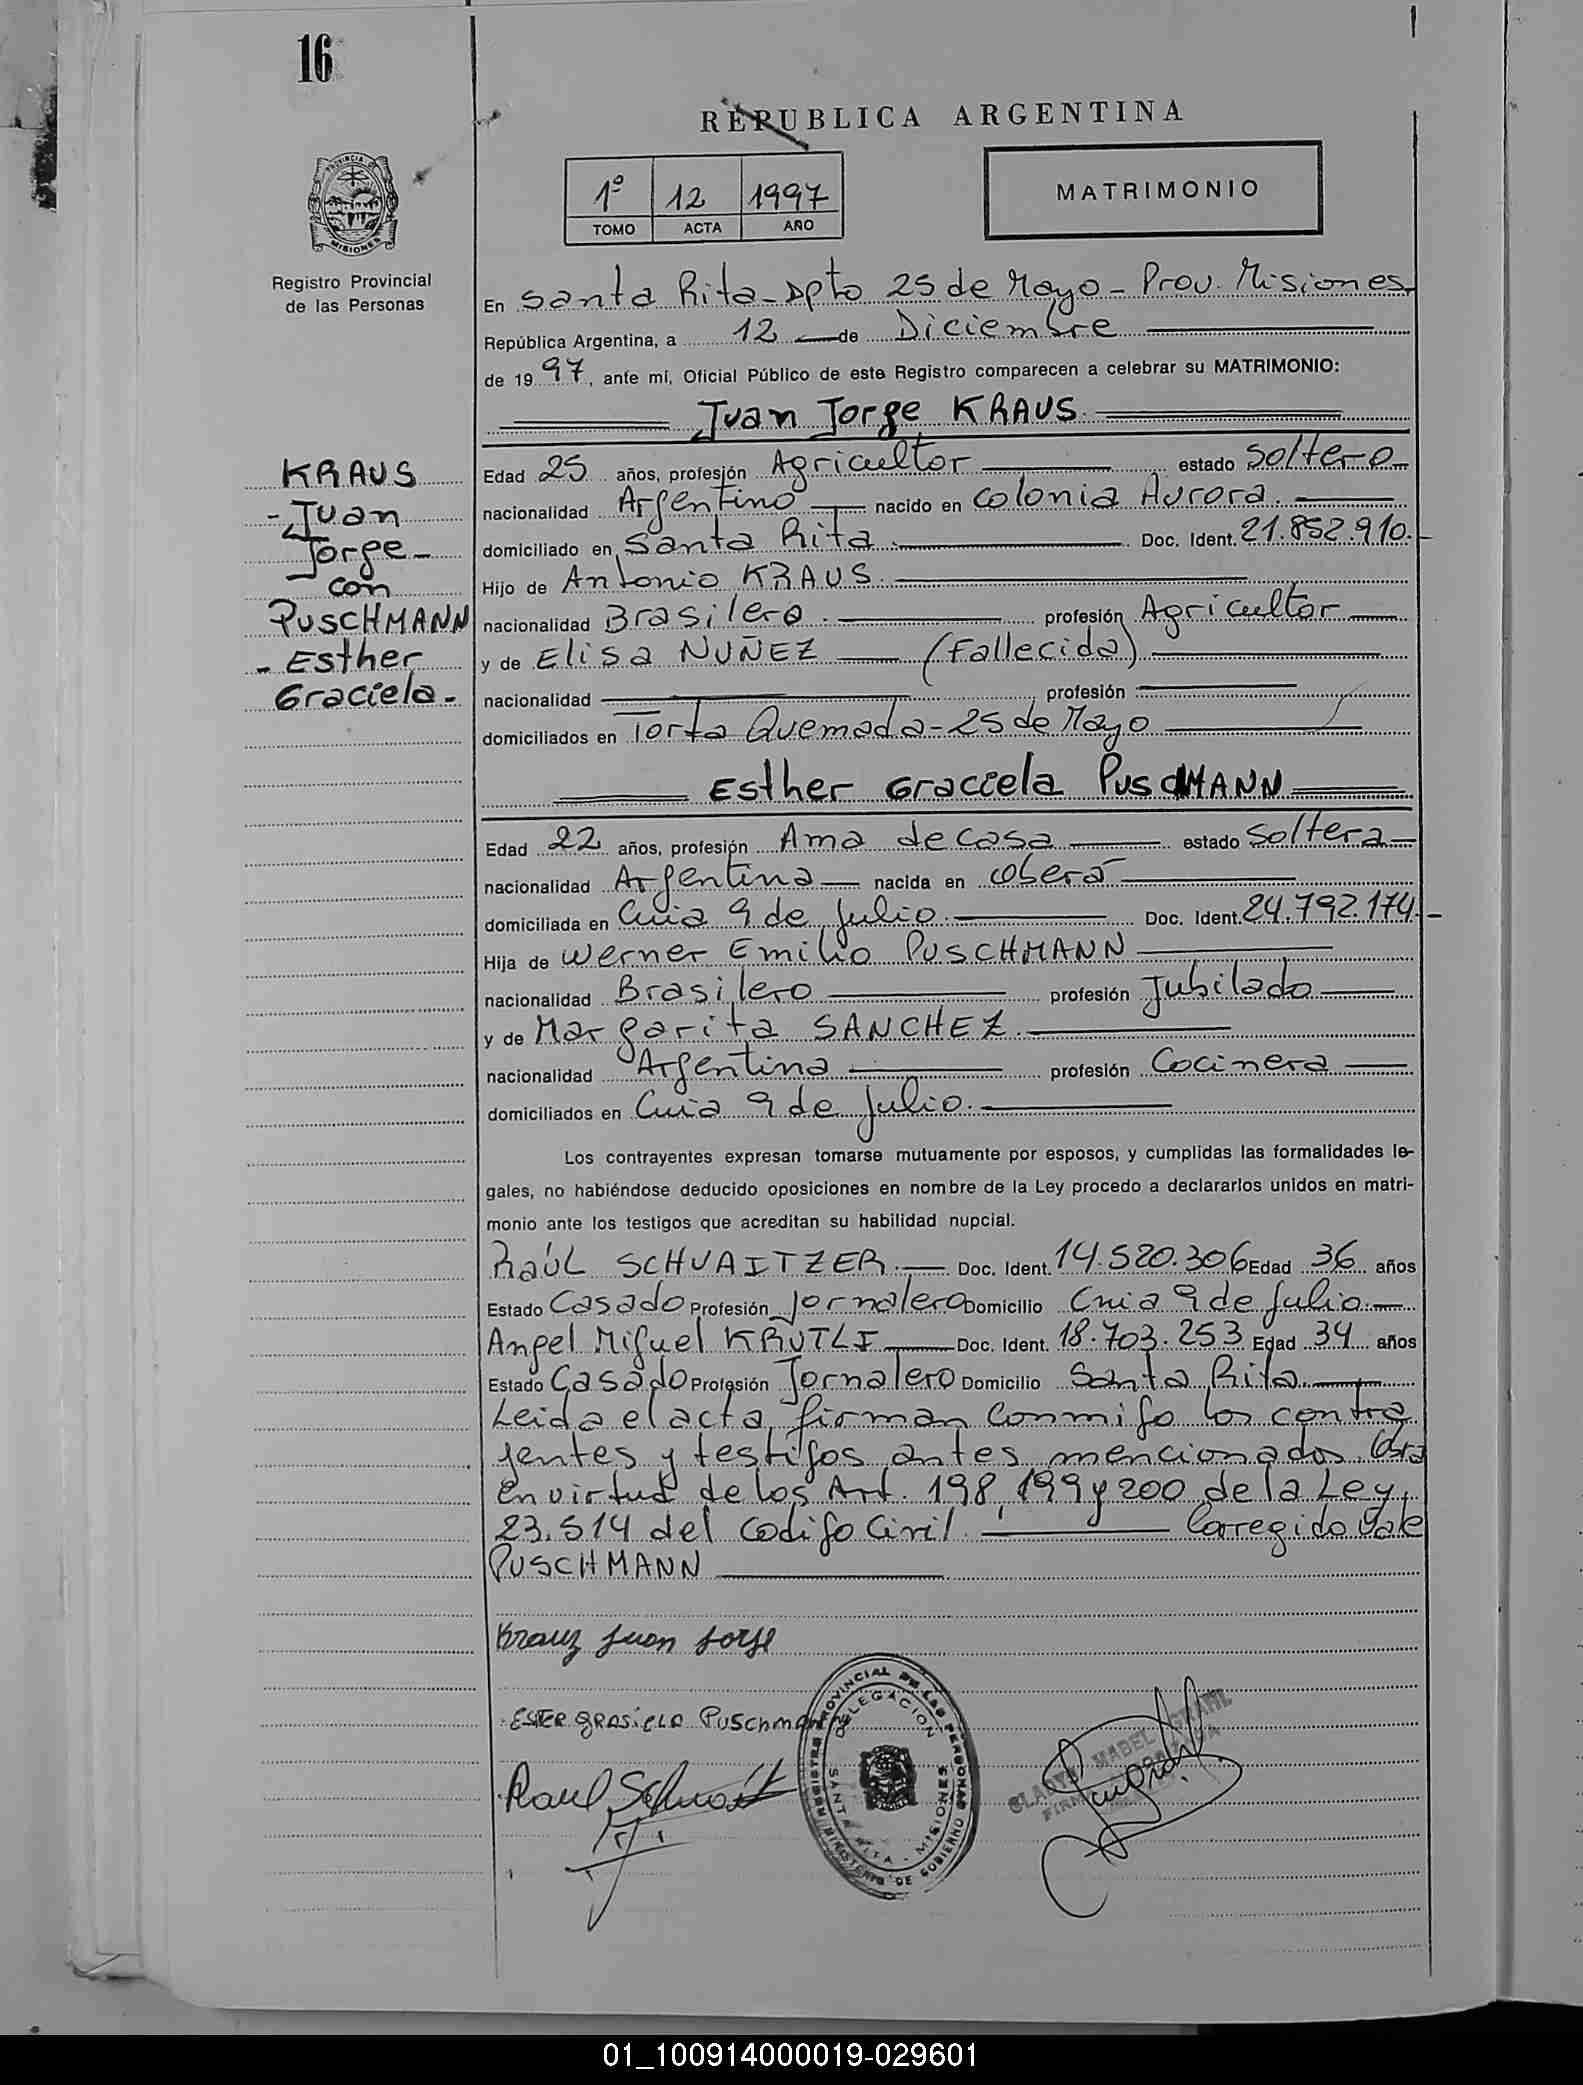 16
REPUBLICA ARGENTINA
1º 12 1997
TOMO ACTA AÑO
MATRIMONIO
PROVINCIA DE MISIONES
Registro Provincial
de las Personas
En Santa Rita - Dpto 25 de Mayo - Prov. Misiones
República Argentina, a 12 de Diciembre
de 1997, ante mí, Oficial Público de este Registro comparecen a celebrar su MATRIMONIO:
Juan Jorge KRAUS
KRAUS
- Juan
Jorge -
con
PUSCHMANN
- Esther
Graciela -
Edad 25 años, profesión Agricultor estado Soltero
nacionalidad Argentino nacido en Colonia Aurora.
domiciliado en Santa Rita. Doc. Ident. 21.852.910.
Hijo de Antonio KRAUS.
nacionalidad Brasilero. profesión Agricultor
y de Elisa NUÑEZ (Fallecida)
nacionalidad profesión
domiciliados en Torta Quemada - 25 de Mayo
Esther Graciela PUSCHMANN
Edad 22 años, profesión Ama de casa estado Soltera
nacionalidad Argentina nacida en Oberá
domiciliada en Cnia 9 de Julio. Doc. Ident. 24.792.174.
Hija de Werner Emilio PUSCHMANN
nacionalidad Brasilero profesión Jubilado
y de Margarita SANCHEZ.
nacionalidad Argentina profesión Cocinera
domiciliados en Cnia 9 de Julio.
Los contrayentes expresan tomarse mutuamente por esposos, y cumplidas las formalidades le-
gales, no habiéndose deducido oposiciones en nombre de la Ley procedo a declararlos unidos en matri-
monio ante los testigos que acreditan su habilidad nupcial.
Raúl SCHVAITZER. Doc. Ident. 14.520.306 Edad 36 años
Estado Casado Profesión Jornalero Domicilio Cnia 9 de Julio.
Angel Miguel KRUTLI Doc. Ident. 18.703.253 Edad 34 años
Estado Casado Profesión Jornalero Domicilio Santa Rita.
Leida el acta, firman conmigo los contra
yentes y testigos antes mencionados. Obra
en virtud de los Art. 198, 199 y 200 de la Ley
23.514 del Codigo Civil. Corregido Vale
PUSCHMANN
Krauz Juan Jorge
ESTER GRASIELA PUSCHMANN
Raul
REGISTRO PROVINCIAL DE LAS PERSONAS
MINISTERIO DE GOBIERNO
DELEGACION
SANTA RITA - MISIONES
GLADYS MABEL GRAHL
01_100914000019-029601